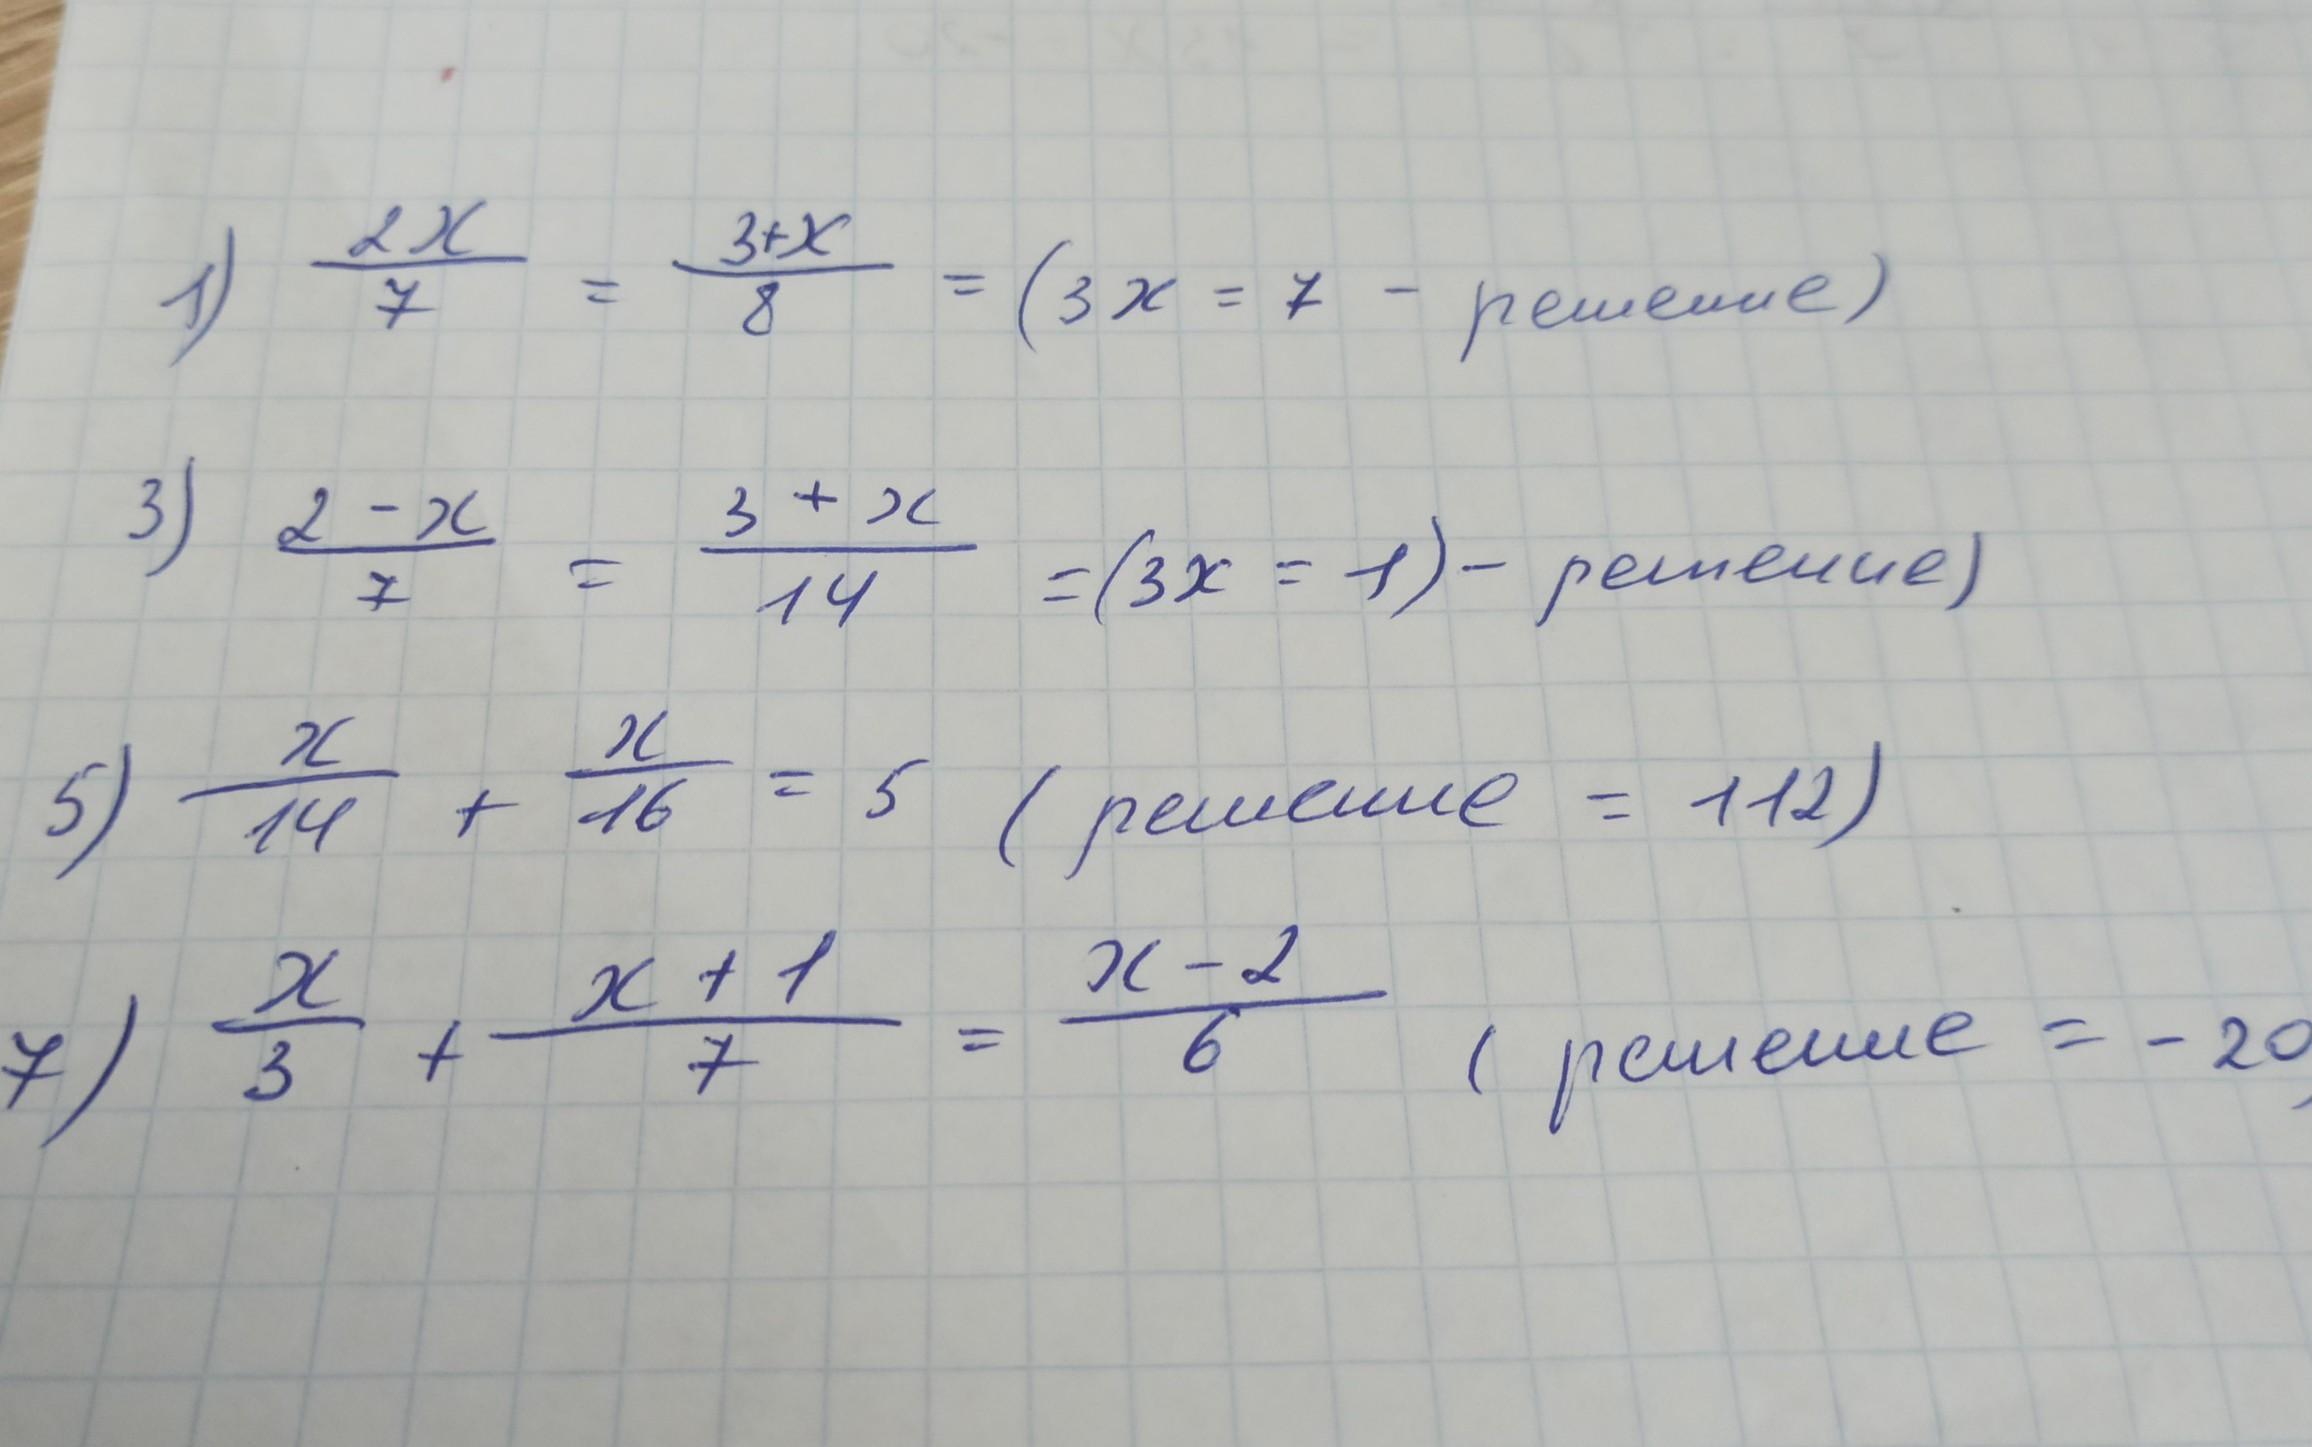 1) 2x/7 = 3+x/8 = (3x = 7 - решение)
3) 2 - x/7 = 3 + x/14 = (3x = 1) - решение)
5) x/14 + x/16 = 5 ( решение = 112)
7) x/3 + x + 1/7 = x - 2/6 ( решение = - 20)